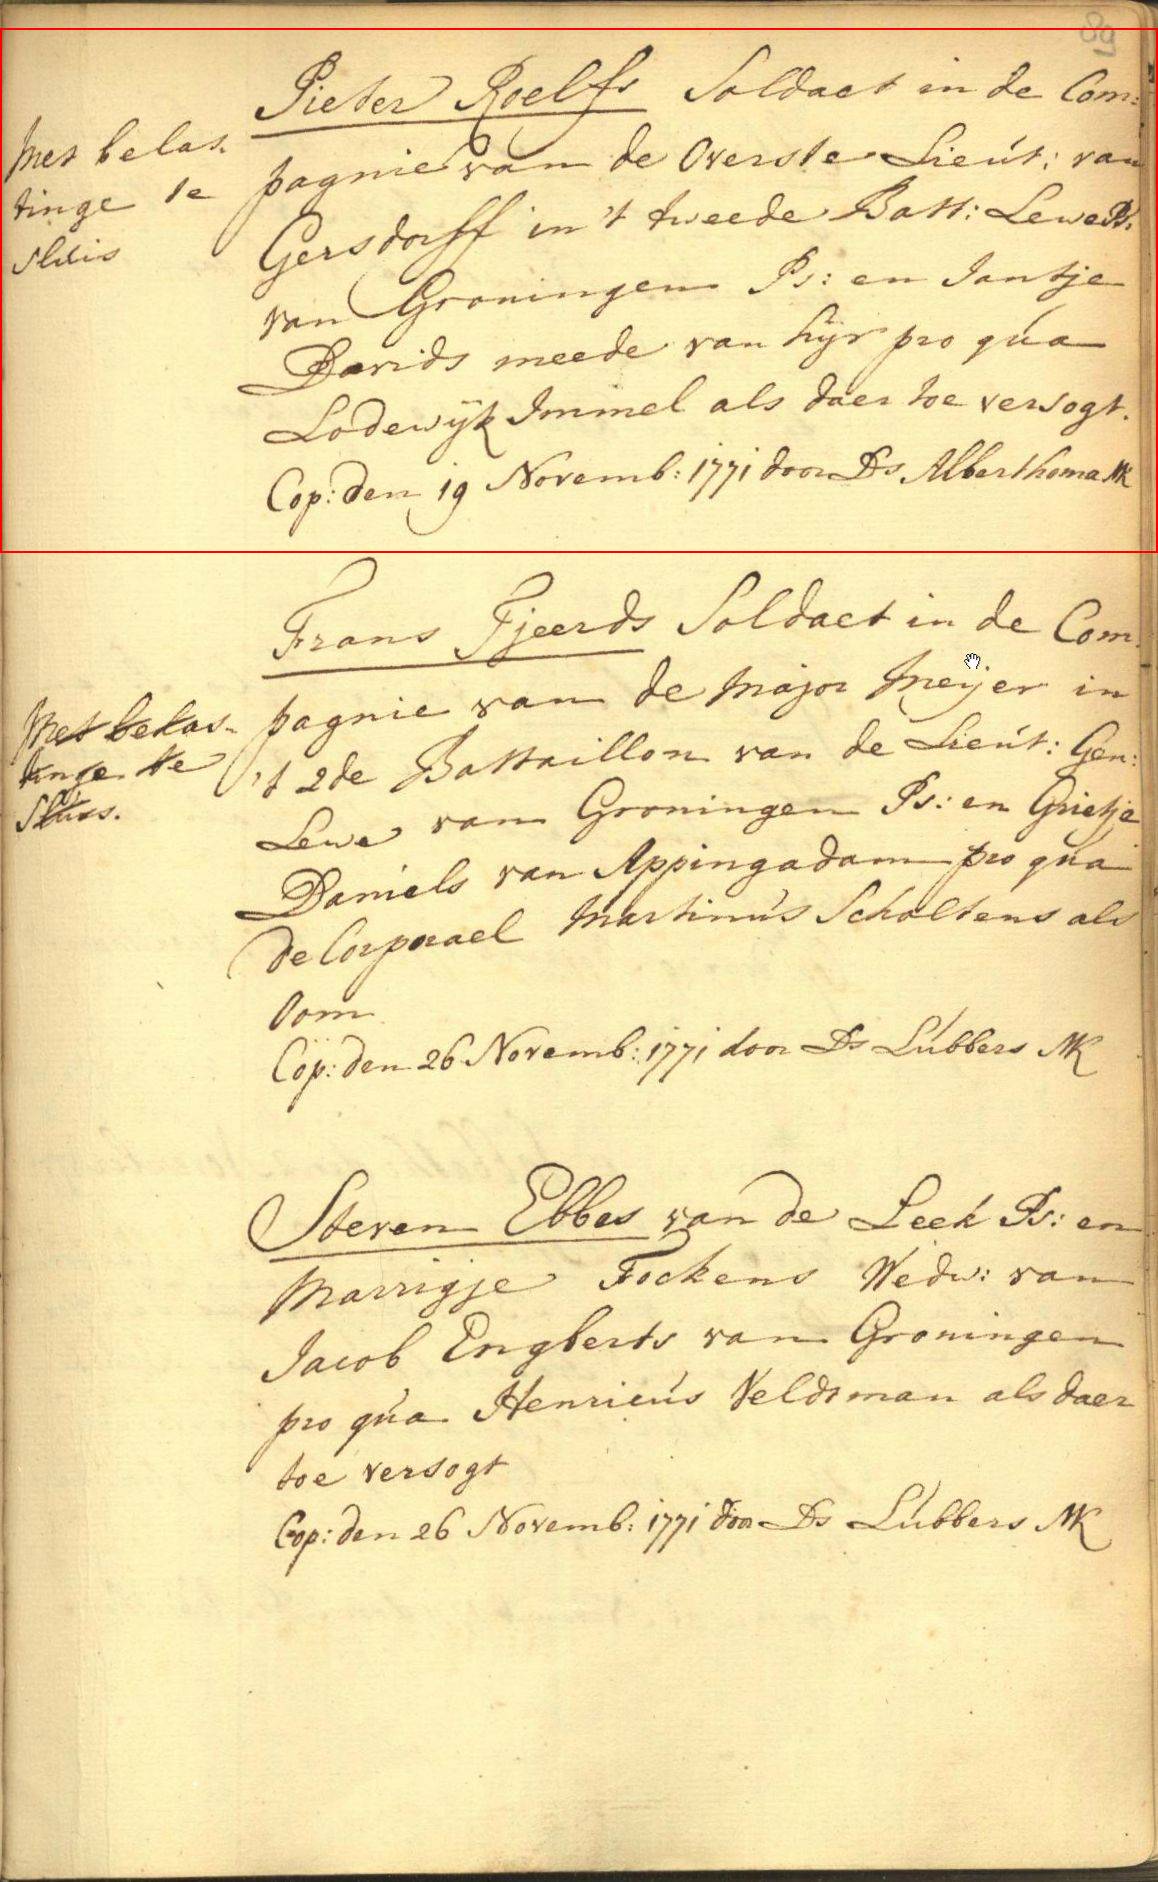 89
Pieter Roelfs Soldaet in de Com:
Met belas-
tinge te
Sluis
pagnie van de Overste Lieut: van
Gersdorff in 't tweede Batt: Lewe Ps:
van Groningen Ps: en Jantje
Davids meede van hijr pro qua
Lodewijk Immel als daer toe versogt.
Cop: den 19 Novemb: 1771 door Ds Alberthoma MK
Frans Tjeerds Soldaet in de Com
Met belas-
tinge te
Sluis.
pagnie van de Major Meijer in
't 2de Battaillon van de Lieut: Gen:
Lewe van Groningen Ps: en Grietje
Daniels van Appingadam pro qua
de Corporael Martinus Scholtens als
Oom
Cop: den 26 Novemb: 1771 door Ds Lubbers MK
Steven Ebbes van de Leek Ps: en
Marrigje Fockens Wedw: van
Jacob Engberts van Groningen
pro qua Henricus Veldtman als daer
toe versogt
Cop: den 26 Novemb: 1771 door Ds Lubbers MK